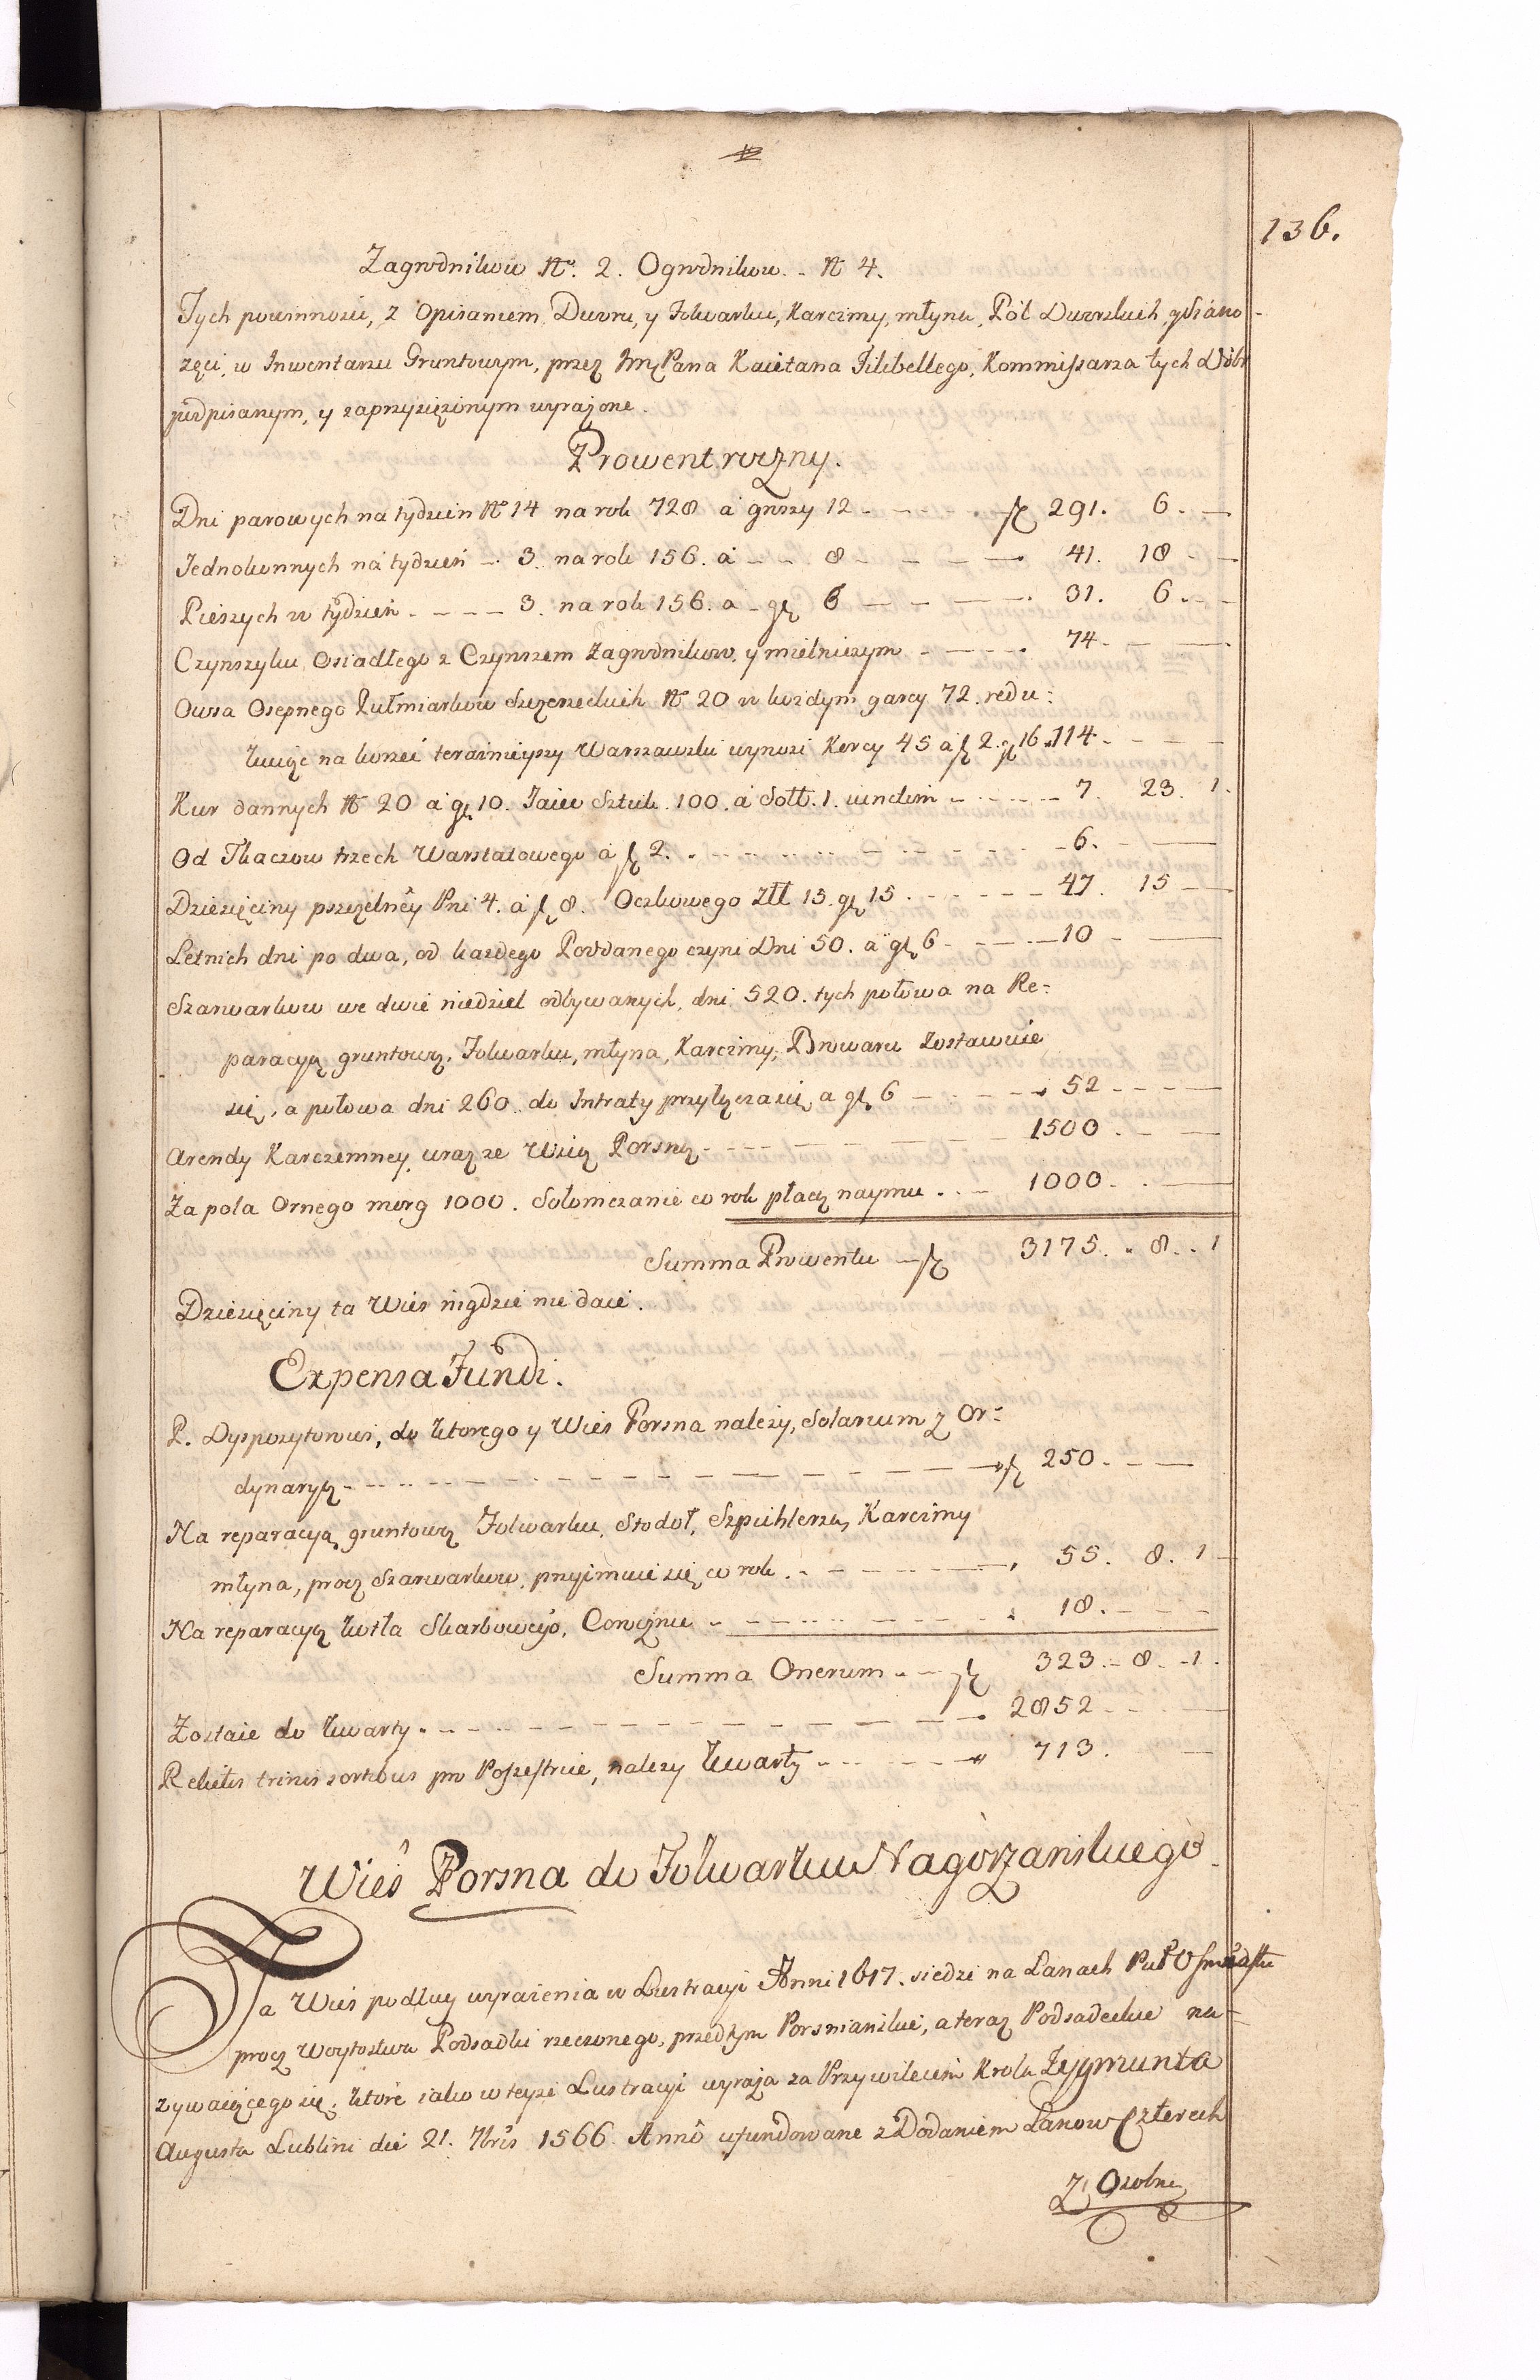 136.
Zagrodnikow No. 2. Ogrodnikow. - No 4.
Tych powinność, z Opisaniem Dworu, y Folwarku, Karczmy, młyna, Pól Dworskich, y Siano-
zęci, w Inwentarzu Gruntowym, przez Jmć Pana Kaietana Kommissarza tych Dóbr
podpisanym, y zaprzysiężonym wyrażone.
Prowent roczny.
Dni parowych na tydzień No 14 na rok 728 a groszy 12 - - - - fl 291. 6. -
Jednokonnych na tydzień - 3. na rok 156. a - - 8 - - - - 41. 18 - -
Pieszych w tydzień - - - - 3. na rok 156. a - gr 6 - - - - 31. 6. - -
Czynszyku Osiadłego z Czynszem Zagrodnikow, y mielniczym - - - - 74 - - -
Owsa Osepnego Pułmiarkow Szczerzeckich No 20 w kozdym garcy 72. redu:
kuiąc na korzec teraznieyszy Warszawski wynosi Korcy 45 a fl 2. gr 16. 114 - - - -
Kur dannych No 20 a gr 10. Jaiec Sztuk. 100. a Soll. 1. unclem - - - - 7. 23. 1.
Od Tkaczow trzech Warstatowego a fl 2. - - - - - - 6. - -
Dziesięciny pszczelney Pni 4. a fl 8. Oczkowego Zll 15. gr 15 - - - - 47. 15 - -
Letnich dni po dwa, od kazdego Poddanego czyni Dni 50. a gr 6 - - - - 10 - -
Szarwarkow we dwie niedziel odbywanych, dni 520. tych połowa na Re-
paracyą gruntową, Folwarku, młyna, Karczmy, Browaru zostawuie
się, a połowa dni 260. do Intraty przyłącza się, a gr 6 - - - - 52 - - - -
Arendy Karczemney wraz ze Wsią Porsną - - - - - - 1500. - -
Za pola Ornego morg 1000. Sołomczanie co rok płacą naymu. - - 1000. - -
Summa Prowentu - fl 3175. - 8. - 1
Dziesięciny ta Wieś nigdzie nie daie.
Expensa Fundi.
P. Dyspozytorowi, do ktorego y Wieś Porsna nalezy, Solarium z Or-
dynaryą - - - - - - - - - fl 250. - - -
Na reparacyą gruntową Folwarku, Stodoł, Szpichlerza, Karczmy
młyna, procz Szarwarkow, przyimuie się co rok. - - - - 55. 8. 1 -
Na reparacyą kotła Skarbowego, Corocznie - - - - - 18. - - -
Summa Onerum - - fl 323. - 8. - 1.
Zostaie do kwarty. - - - - - - - - - 2852 - - -
Relictis trinis sortibus pro Possessore, nalezy kwarty - - - - 713. -
Wieś Porsna do Folwarku Nagorzanskiego
Ta Wieś podług wyrażenia w Lustracyi Anni 1617. siedzi na Łanach
procz Woytostwa Podsadki rzeczonego, przedtym Porsnianskie, a teraz Podsadeckie na-
zywaiącego się, ktore iako w teyże Lustracyi wyraża za Przywileiem Krola Zygmunta
Augusta Lublini die 21. 7bris 1566. Anno ufundowane z Dodaniem Łanow Czterech
Z, Osobna